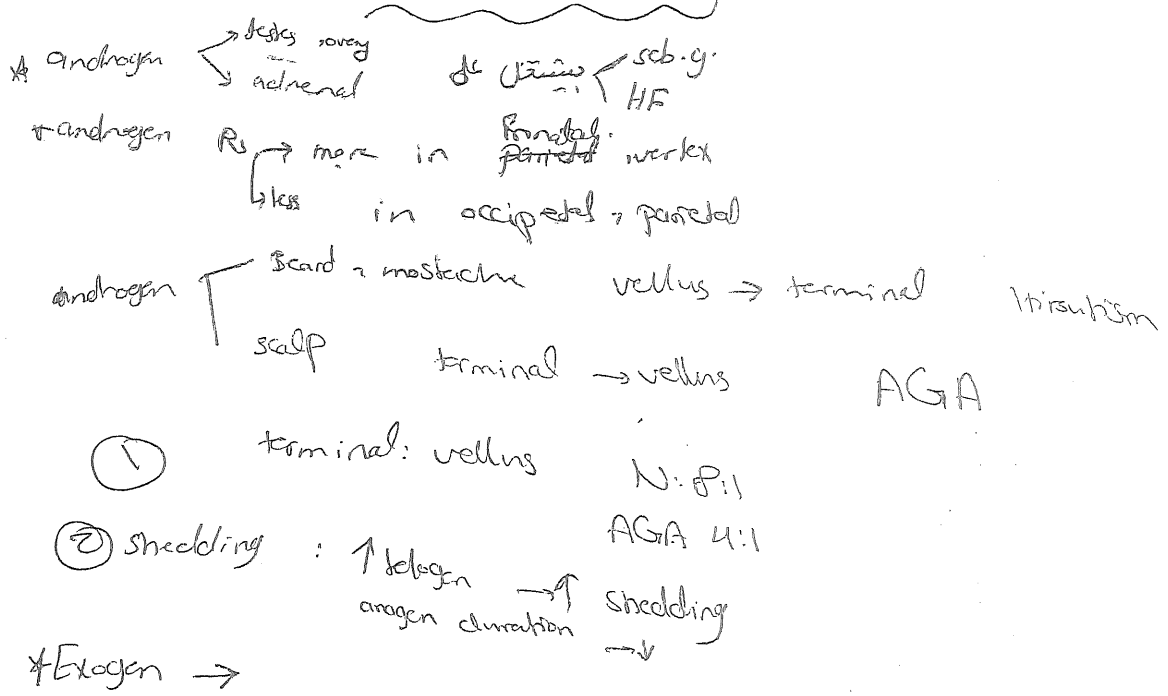 * androgen → testes, ovary
→ adrenal
بيشتغل على seb. g.
HF
+ androgen Rs → more in Frontal. parietal, vertex
↳ less in occipetal, parietal
androgen Beard, mostache vellus → terminal Hirsutism
scalp terminal → vellus AGA
① terminal: vellus N: 8:1
AGA 4:1
② shedding : ↑ telogen → ↑ shedding
anagen duration → ↓
* Exogen →